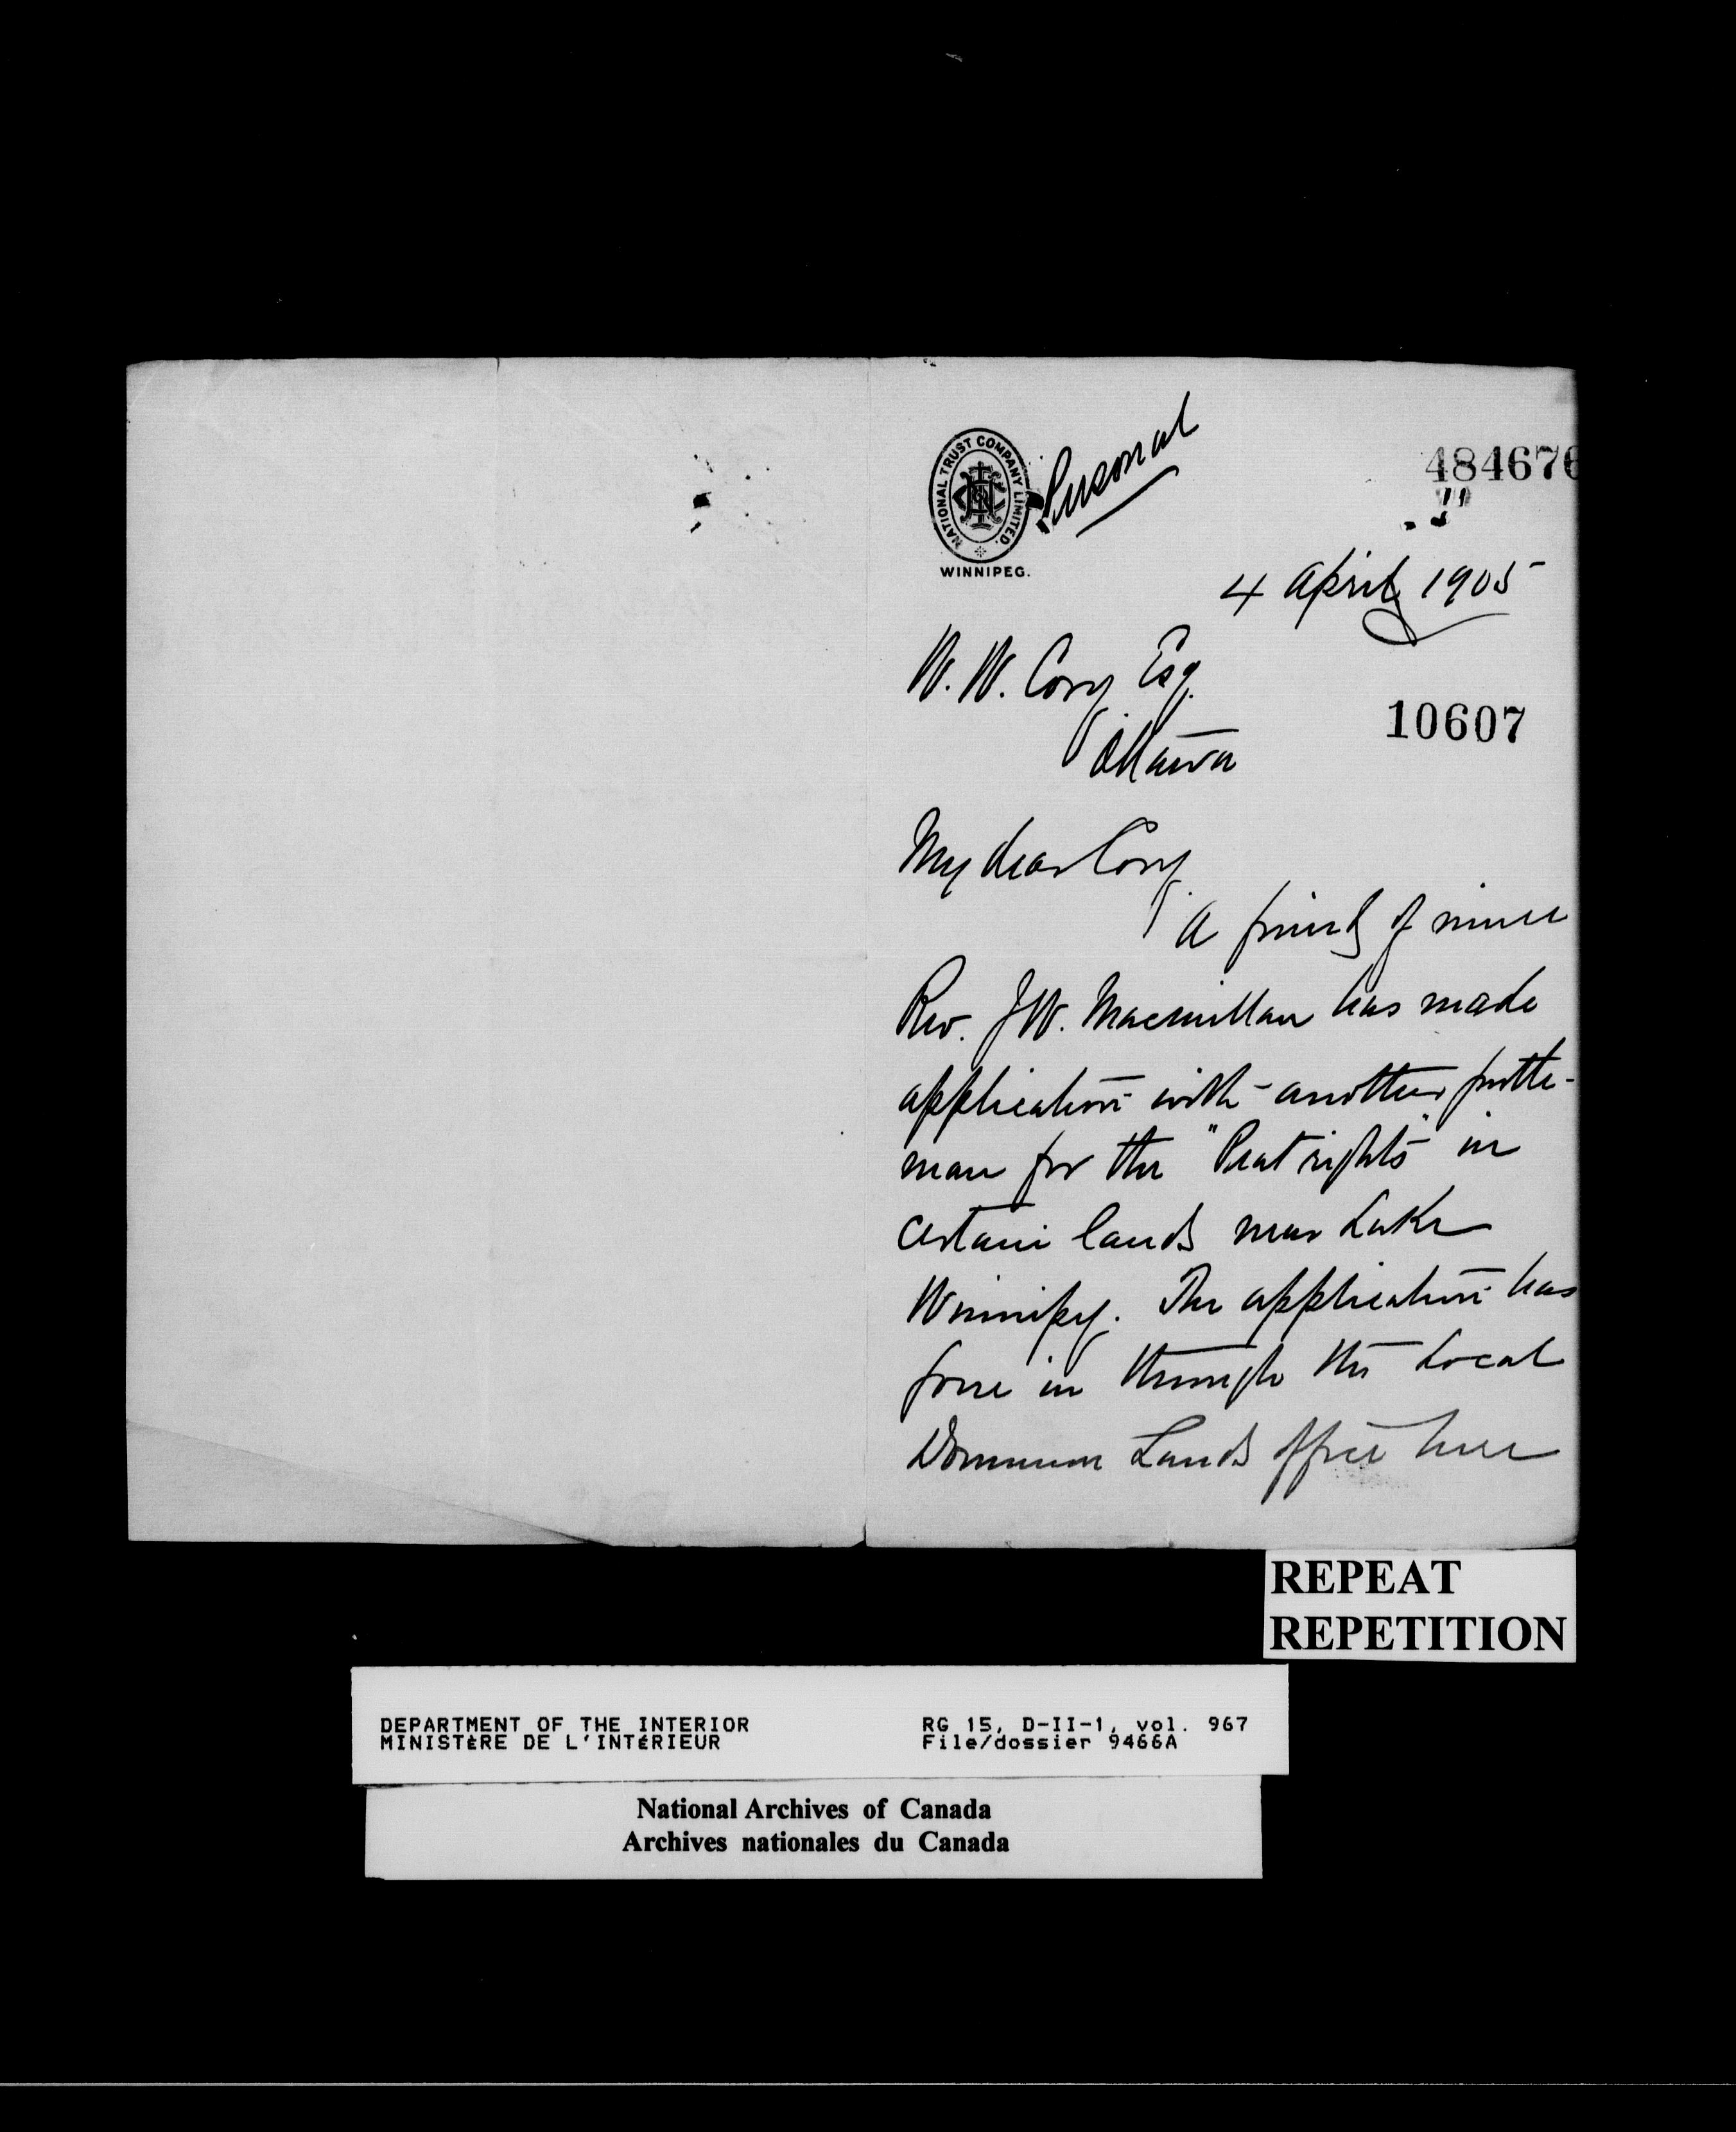 NATIONAL TRUST COMPANY LIMITED.
WINNIPEG.
Personal
484676
4 April 1905
W. W. Cory Esq.
10607
Ottawa
My dear Cory
A friend of mine
Rev. J W. Macmillan has made
application with another gentle-
man for the "Peat rights" in
certain lands near Lake
Winnipeg. The application has
gone in through the Local
Dominion Lands office here
REPEAT
REPETITION
DEPARTMENT OF THE INTERIOR
MINISTÈRE DE L'INTÉRIEUR
RG 15, D-II-1, vol. 967
File/dossier 9466A
National Archives of Canada
Archives nationales du Canada